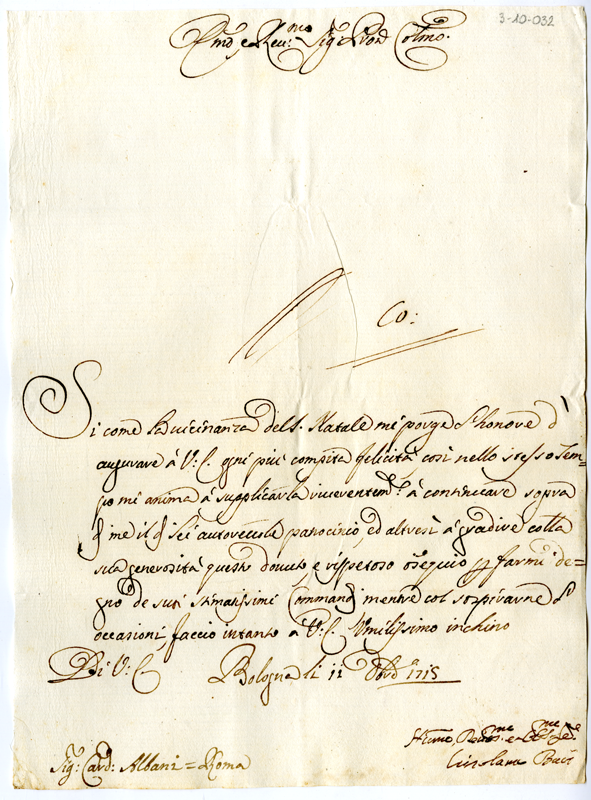 3-10-032
Emo e Reu:mo Sig: Pron Colmo.
Co:
Si come la uicinanza del S. Natale mi porge l'honore d'
augurare à V: E. ogni più compita felicità così nello stesso tem=
po mi anima à supplicarla riuerentem.te à continuare sopra
di me il di Lei autoreuole patrocinio, ed altresì à gradire colla
sua generosità questo douuto, e rispetoso osequio p farmi de=
gno de suoi stimatissimi Commandi mentre col sospirarne l'
occasioni, faccio intanto à V: E. Vmilissimo inchino
Di V: E. Bologna li 11 Xbre 1715
Sig:r Card: Albani = Roma